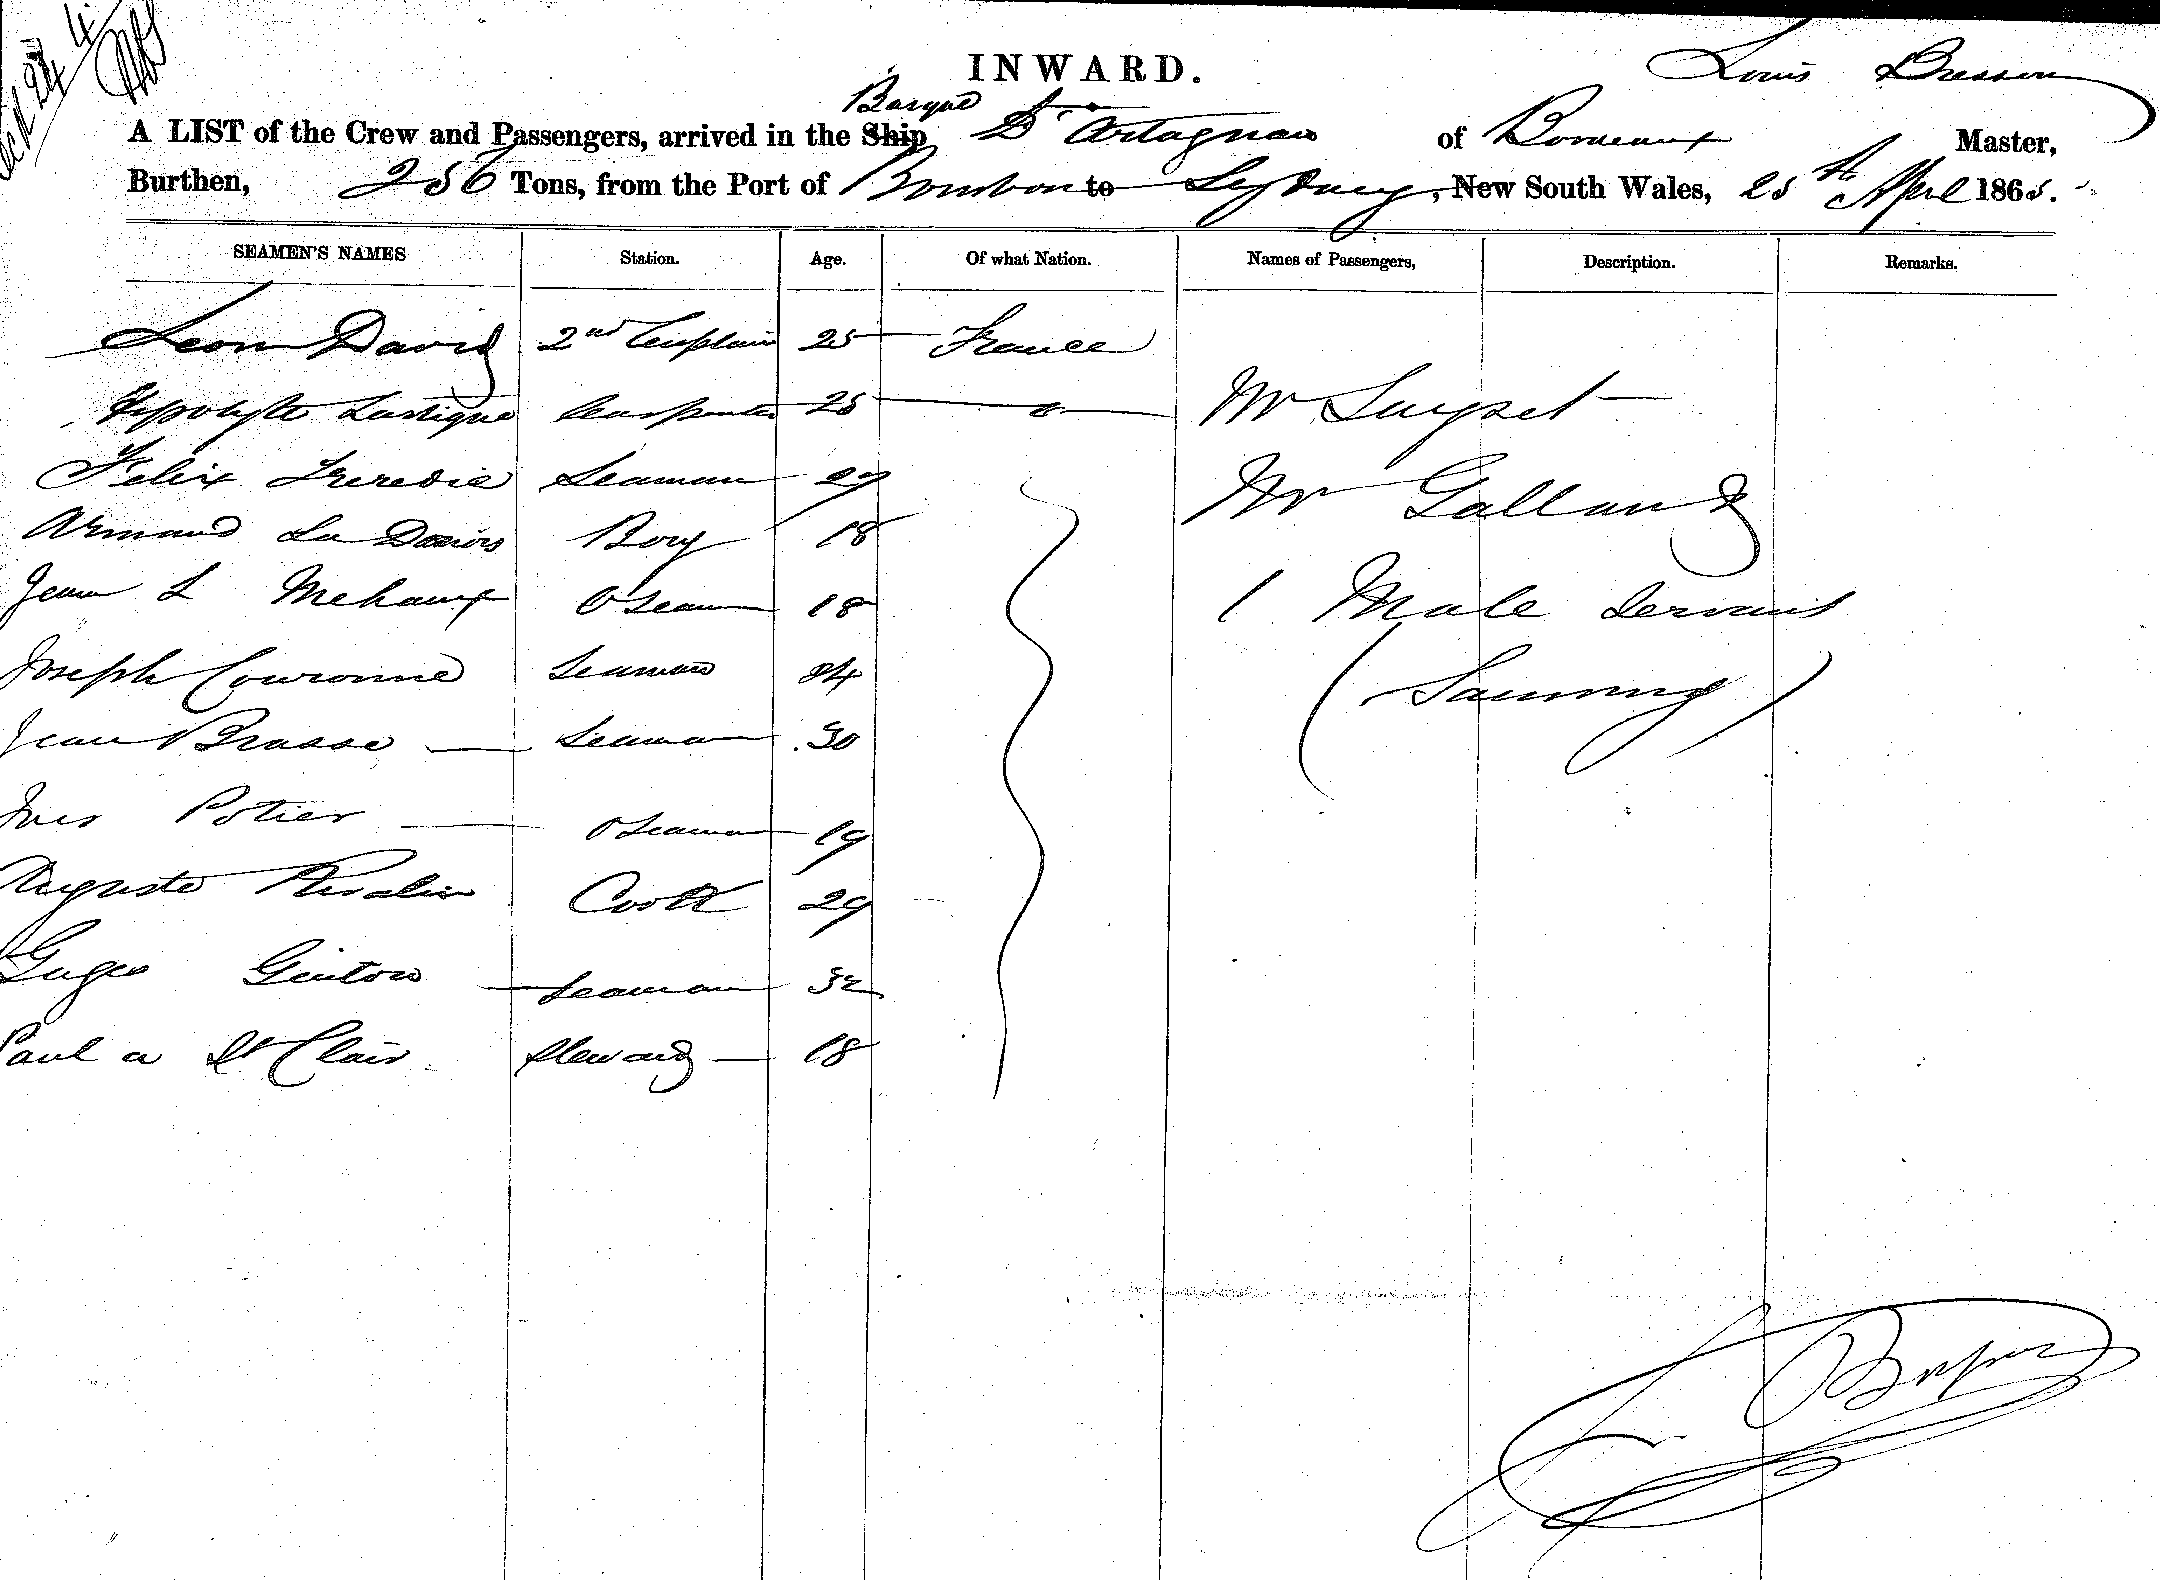 INWARD.
Louis Bresson
Barque
A LIST of the Crew and Passengers, arrived in the Ship D'Artagnan of Bordeaux Master,
Burthen, 256 Tons, from the Port of Bourbon to Sydney, New South Wales, 25th April 1865.
SEAMEN'S NAMES Station. Age. Of what Nation. Names of Passengers, Description. Remarks.
Leon David 2nd Captain 25 France
Hypolyte Lartigue Carpenter 25 "
Mr
Felix Seaman 27
Mr Galland
Armand Boy 18
Jean L Mehaux O Seaman 18
1 Male Servant
Joseph Couronne Seaman
(Sammy)
Jean Brasse Seaman 30
Ives Potier O Seaman 19
Auguste Cook 29
Seaman 32
Paul a St Clair Steward 18